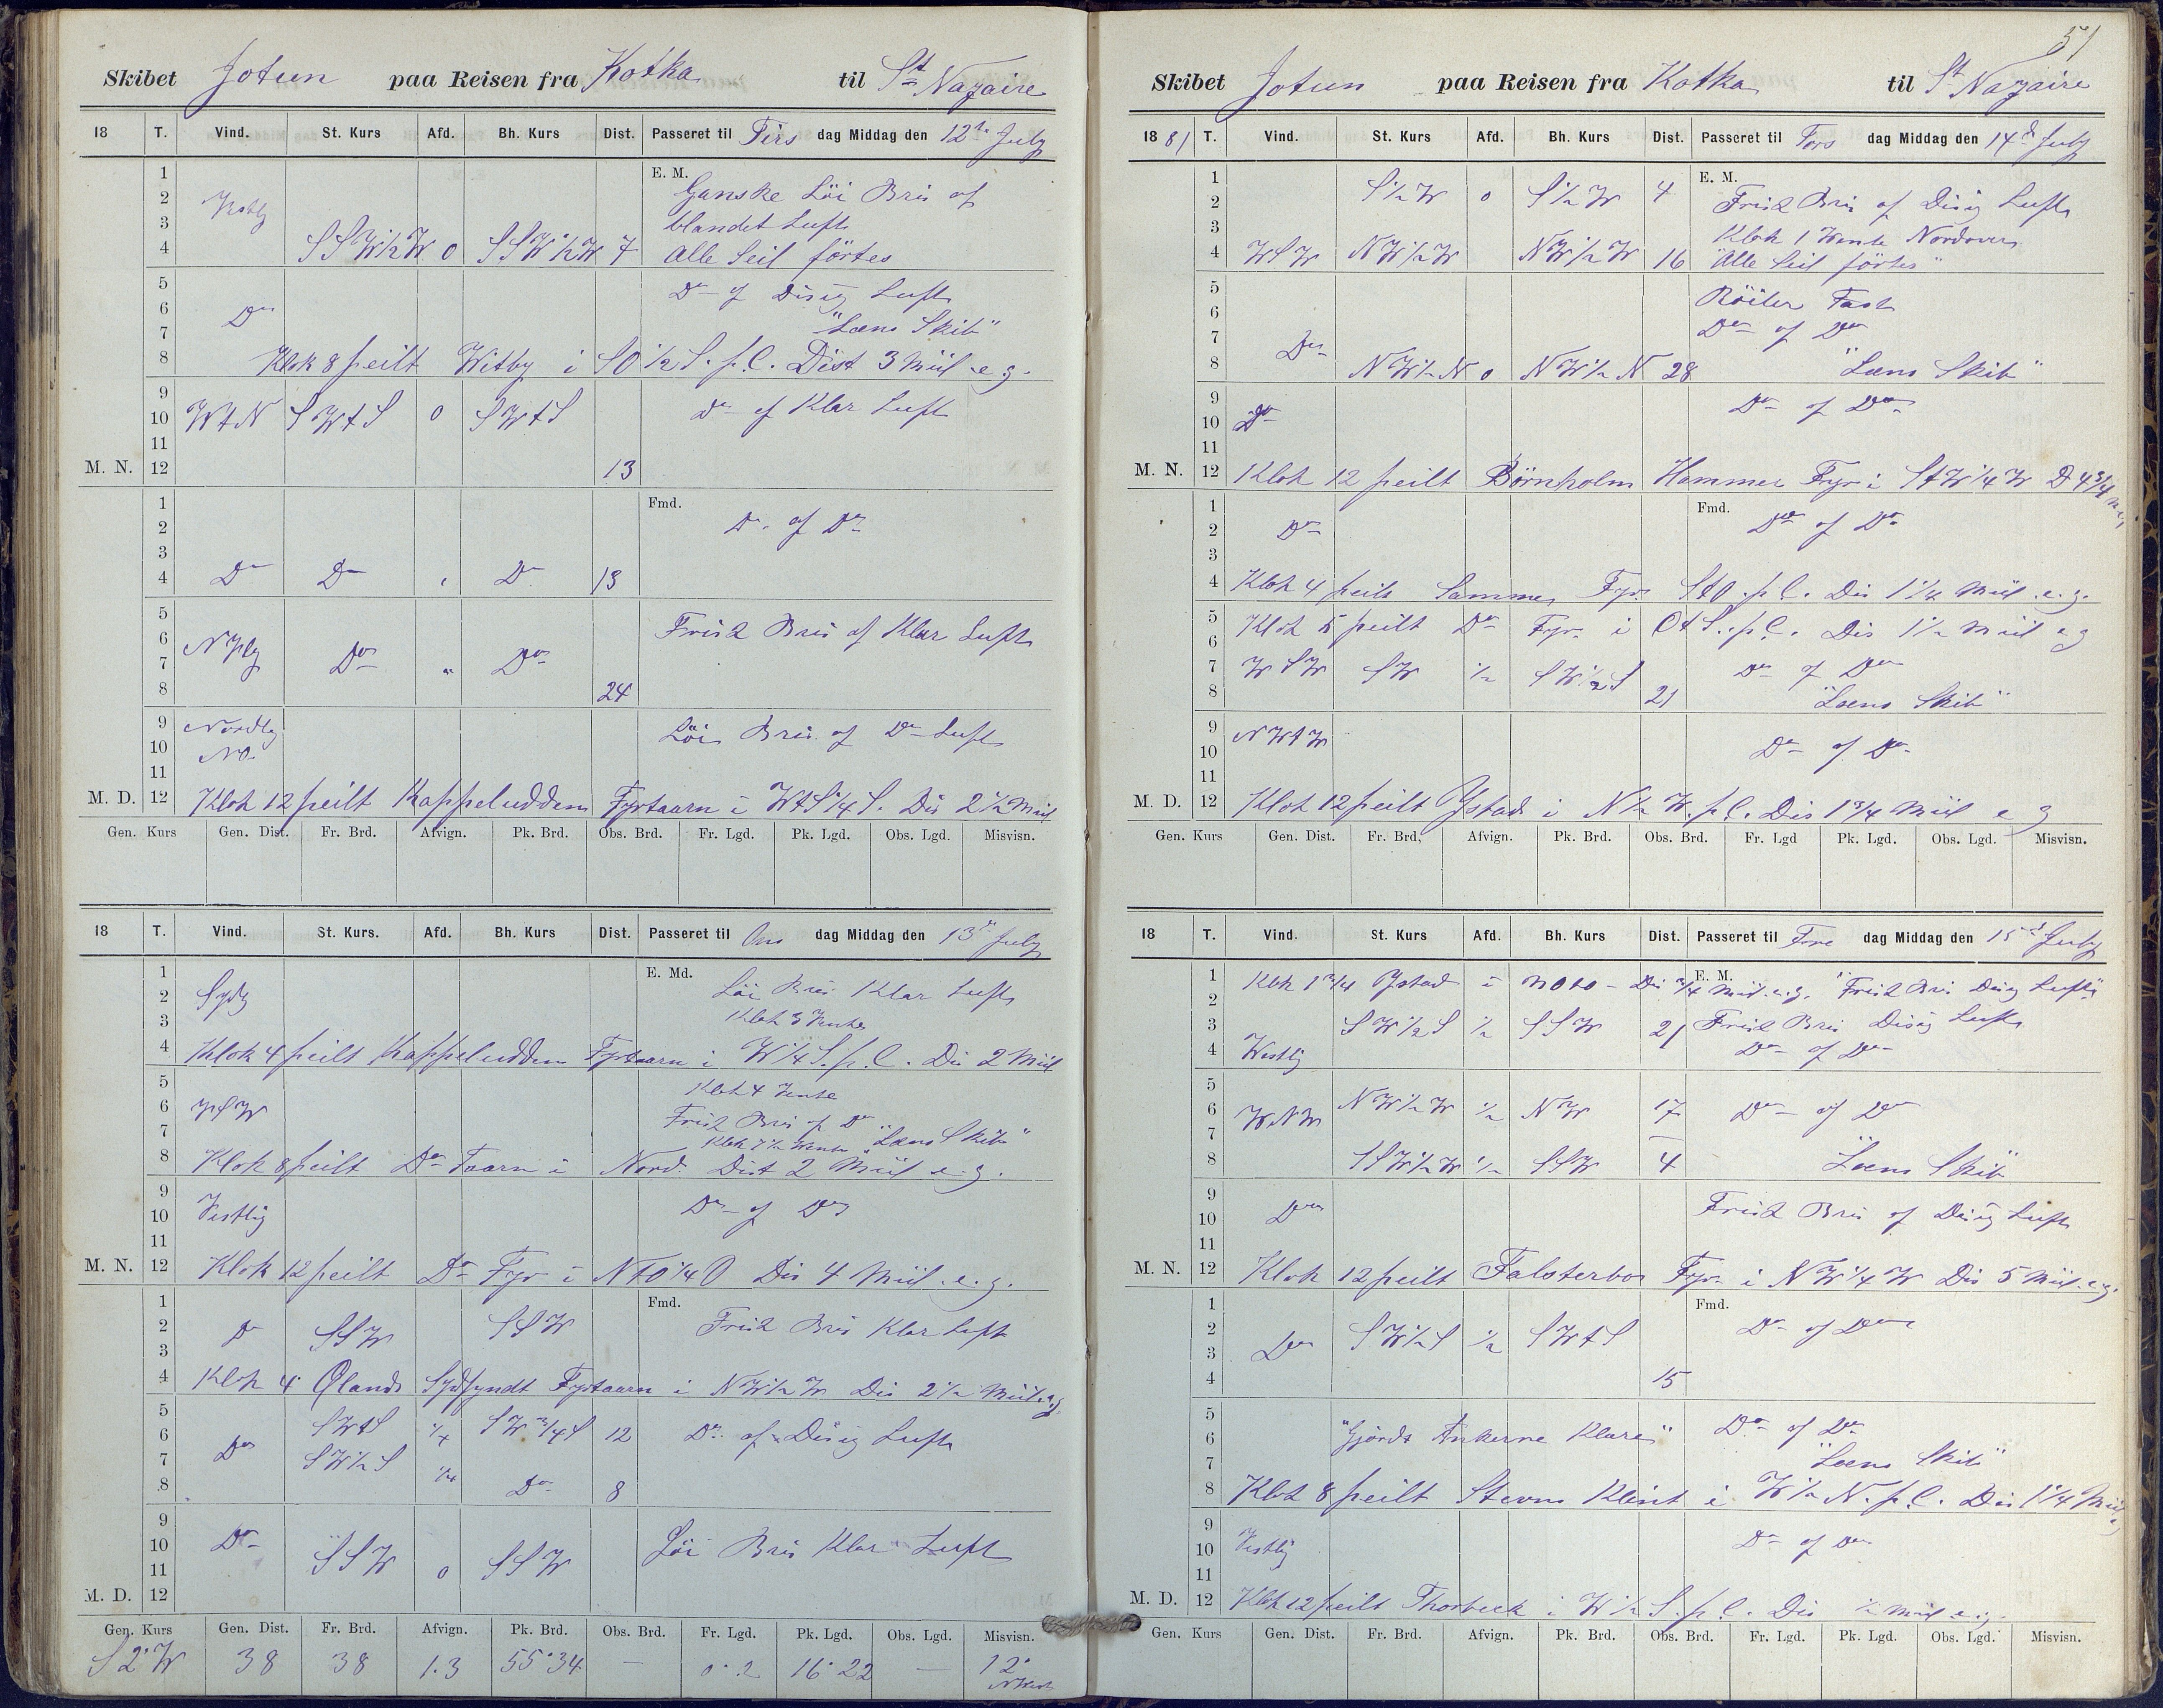 Skibet Jotun paa Reisen fra Kotka til St Nazaire
18 T. Vind. St. Kurs Afd. Bh. Kurs Dist. Passeret til Tirs dag Middag den 12te July
1 E. M. Ganske Löi Bris af
2 blandet Luft
3
4 SSW 1/2 W 0 SSW 1/2 W 7 Alle Seil förtes
5 Do af Disig Luft
6 Do
7 "Læns Skib"
8 Klok 8 peilt Witby i SO 1/2 S. p. C. Dist 3 Miil e.g.
9
10 WtN SWtS 0 SWtS Do af Klar Luft
11
M. N. 12 13
1 Fmd.
2 Do af Do
3
4 Do Do Do 13
5
6 Frisk Bris af Klar Luft
7 Do " Do
8 24
9 Nordlig Löi Bris af Do Luft
10 NO.
11
M. D. 12 Klok 12 peilt Kappeludden Fyrtaarn i WtS 1/4 S. Dis 2 1/2 Miil
Gen. Kurs Gen. Dist. Fr. Brd. Afvign. Pk. Brd. Obs. Brd. Fr. Lgd. Pk. Lgd. Obs. Lgd. Misvisn.
18 T. Vind. St. Kurs. Afd. Bh. Kurs Dist. Passeret til Ons dag Middag den 13de July
1 E. Md. Löi Bris Klar Luft
2 Sydlg
3 Klok 3 Vente
4 Klok 4 peilt Kappeludden Fyrtaarn i W 1/4 S. p. C. Dis 2 Miil
5 Klok 4 Vente
6 WSW Frisk Bris af Do
7 Klok 7 1/2 Vente "Læns Skib"
8 Klok 8 peilt Do Taarn i Nord. Dist 2 Miil e.g.
9
10 Vestlig Do af Do
11
M. N. 12 Klok 12 peilt Do Fyr i NtO 1/4 O Dis 4 Miil e.g.
1 Fmd.
2 Do SSW SSW Frisk Bris Klar Luft
3
4 Klok 4 Ölands Fyrtaarn i NW 1/2 W Dis 2 1/2 Miil e.g.
5
6 Do SWtS 1/4 SW 3/4 S 12 Do af Disig Luft
7 SW 1/2 S 1/4
8 Do 8
9
10 Do SSW 0 SSW Löi Bris Klar Luft
11
M. D. 12
Gen. Kurs Gen. Dist. Fr. Brd. Afvign. Pk. Brd. Obs. Brd. Fr. Lgd. Pk. Lgd. Obs. Lgd. Misvisn.
S 2° W 38 38 1.3 55°34 — 0° 2 16° 22 — 12°
51
Skibet Jotun paa Reisen fra Kotka til St Nazaire
18 81 T. Vind. St. Kurs Afd. Bh. Kurs Dist. Passeret til Tors dag Middag den 14de July
1 E. M.
2 S 1/2 W 0 S 1/2 W 4 Frisk Bris af Disig Luft
3 Klok 1 Vente Nordover
4 WSW NW 1/2 W NW 1/2 W 16 "Alle Seil förtes"
5 Röiler Fast
6
7 Do af Do
8 Do NW 1/2 N 0 NW 1/2 N 28 "Læns Skib"
9 Do af Do
10 Do
11
M. N. 12 Klok 12 peilt Börnholm Hammer Fyr i StW 1/4 W D 4 3/4
1 Fmd.
2 Do Do af Do
3
4 Klok 4 peilt Sammes Fyr StO. p. C. Dis 1 1/4 Miil e.g.
5 Klok 5 peilt Do Fyr i OtS. p. C. Dis 1 1/2 Miil e g
6
7 WSW SW 1/2 SW 1/2 S Do af Do
8 21 "Læns Skib"
9 NWtW
10 Do af Do
11
M. D. 12 Klok 12 peilt Ystad i N 1/2 W. p. C. Dis 1 3/4 Miil e g
Gen. Kurs Gen. Dist. Fr. Brd. Afvign. Pk. Brd. Obs. Brd. Fr. Lgd Pk. Lgd. Obs. Lgd. Misvisn.
18 T. Vind. St. Kurs Afd. Bh. Kurs Dist. Passeret til Fre dag Middag den 15de July
1 Klok 1 3/4 Ystad i Dis 3/4 Miil e.g. E. M. "Frisk Bris Disig Luft"
2
3 SW 1/2 S 1/2 SSW 21 Frisk Bris Disig Luft
4 Westlig Do af Do
5
6 WNW NW 1/2 W 1/2 NW 17 Do af Do
7
8 SSW 1/2 W 1/2 SSW 4 "Læns Skib"
9
10 Do Frisk Bris af Disig Luft
11
M. N. 12 Klok 12 peilt Falsterbo Fyr i NW 1/4 W Dis 5 Miil e.g.
1 Fmd.
2 Do SW 1/2 S 1/2 SWtS Do af Do
3
4 15
5
6 "Gjordt Ankerne Klare" Do af Do
7 "Læns Skib"
8 Klok 8 peilt Stevns Klint i W 1/2 N. p. C. Dis 1 1/4 Miil
9
10 Vestlig Do af Do
11
M. D. 12 Klok 12 peilt Thorbeck i W 1/2 S. p. C. Dis 1/2 Miil e.g.
Gen. Kurs Gen. Dist. Fr. Brd. Afvign. Pk. Brd. Obs. Brd. Fr. Lgd. Pk. Lgd. Obs. Lgd. Misvisn.